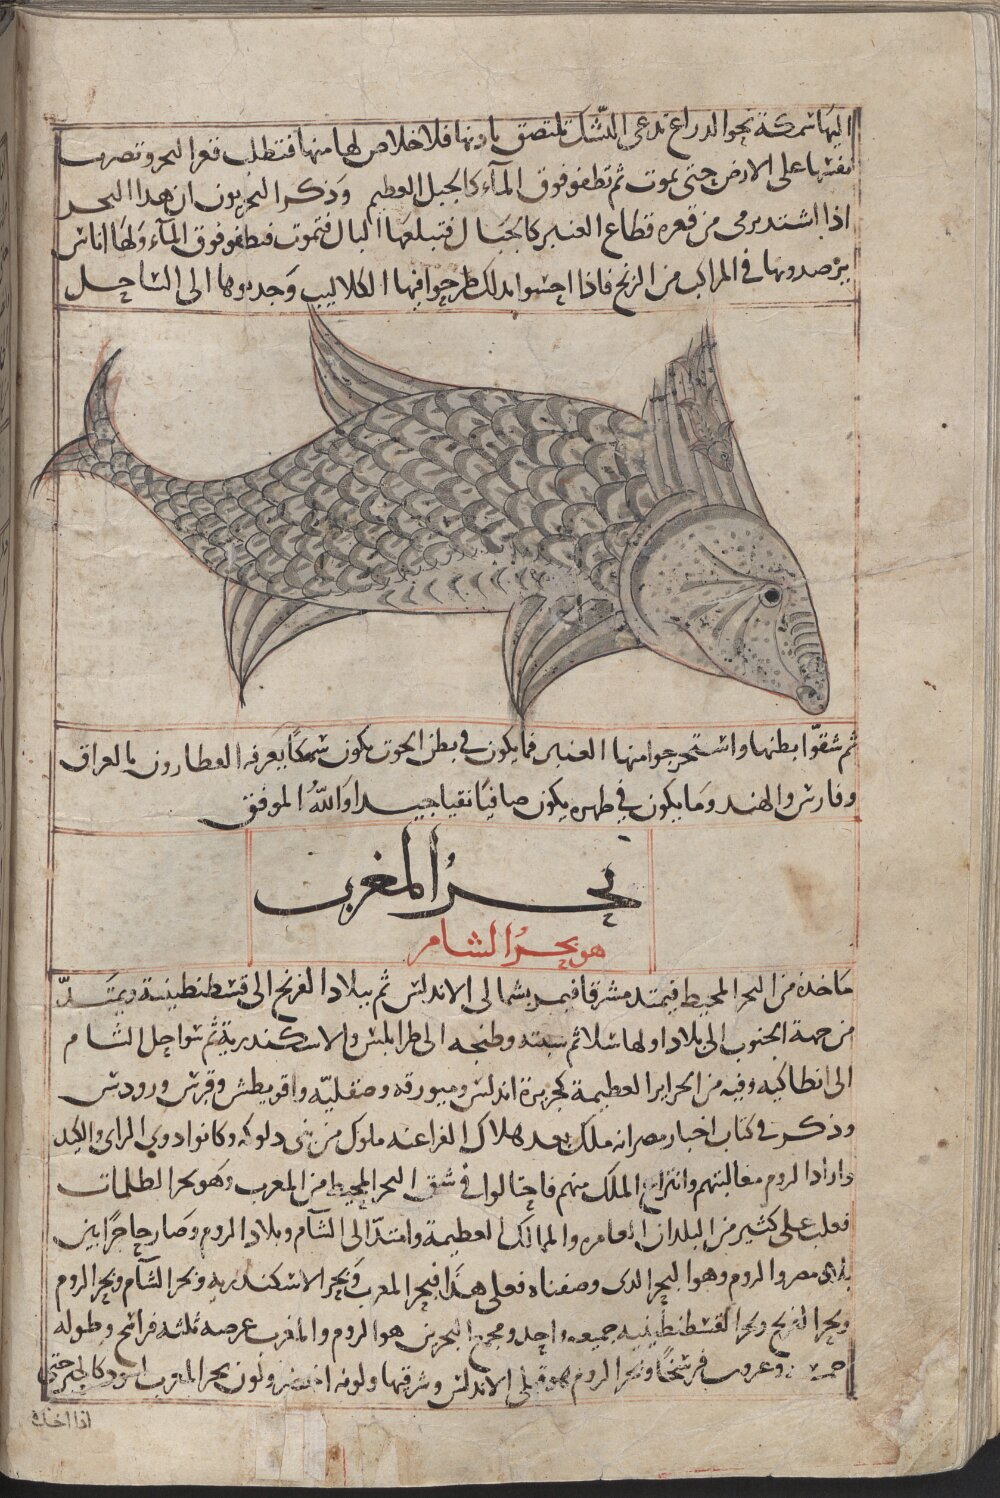 اليها سمكة نحو الدراع تدعى اللشك تلتصق باذنها فلا خلاص لها منها فتطلب قعر البحر وتضرب
بنفسها على الارض حتى تموت ثم تطفو فوق المآء كالجبل العطيم وذكر البحريون ان هدا البحر
اذا اشتد يرمى من قعره قطاع العنبر كالجبال فتبلعها البال فتموت فتطفو فوق المآء ولها اناس
يرصدونها في المراكب من الزنج فاذا احسوا بدلك طرحوا فيها الكلاليب وجدبوها الى الساحل
ثم شقوا بطنها واستخرجوا منها العنبر فما يكون في بطن الحوت يكون سمكا يعرفه العطارون بالعراق
وفارس والهند وما يكون في طهره يكون صافيا نقيا جيدا والله الموفق
بحر المغرب
هو بحر الشام
ماخذه من البحر المحيط فيمتد مشرقا فيمر بشمالى الاندلس ثم ببلاد الفرنج الى قسطنطينية ويمتد
من جهة الجنوب الى بلاد اولها سلا ثم سبته وطنجه الى طرابلس والاسكندرية ثم سواحل الشام
الى انطاكيه وفيه من الجزاير العطيمة كجزيرة اندلس وميورقه وصقليه واقريطش وقبرس ورودس
وذكر في كتاب اخبار مصر انه ملك بعد هلاك الفراعنه ملوك من بنى دلوكه وكانوا دوي الراى والكيد
واراد الروم مغالبتهم وانتزاع الملك منهم فاحتالوا في شق البحر المحيط من المغرب وهو بحر الظلمات
فغلب على كثير من البلدان العامره والممالك العطيمة وامتد الى الشآم وبلاد الروم وصار حاجزا بين
بلاد مصر والروم وهو البحر الدى وصفناه فعلى هذا فبحر المغرب وبحر الاسكندريه وبحر الشآم وبحر الروم
وبحر الفرنج وبحر القسطنطينيه جميعه واحد ومجمع البحرين هو الروم والمغرب عرضه ثلثه فراسخ وطوله
خمسة وعشرون فرسخا وبحر الروم هو قبلى الاندلس وشرقها ولونه اخضر ولون بحر المغرب اسود كالحبر حتى
اذا اخذت